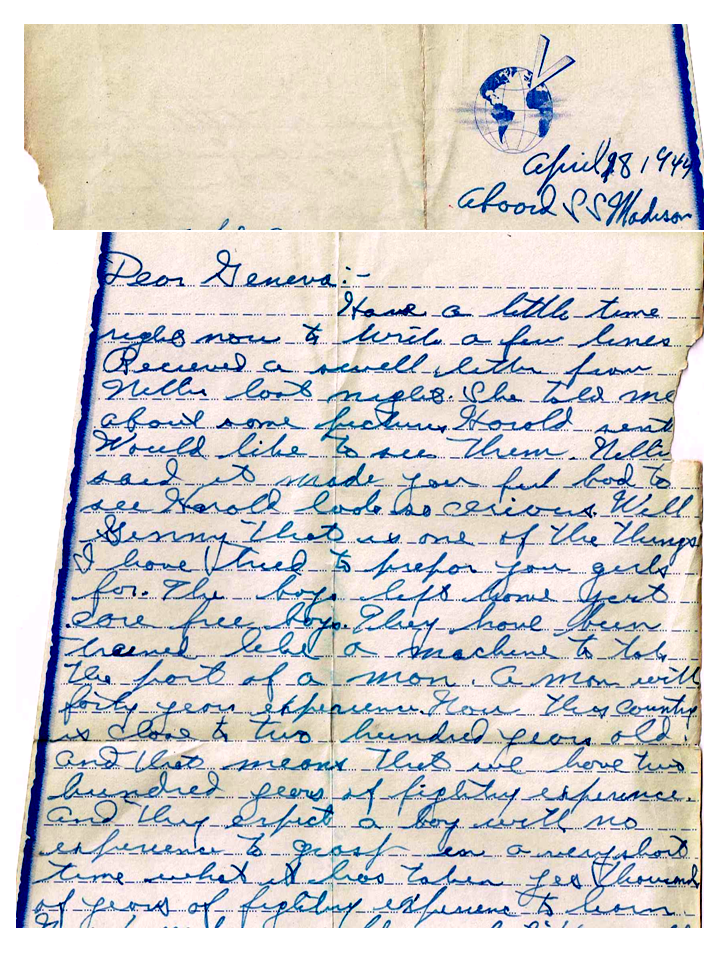 April 28 1944
Aboord SS Madison
Dear Geneva:-
Have a little time
right now to write a few lines
Recieved a swell letter from
Nellie last night. She told me
about some pictures Harold sent
Would like to see them. Nellie
said it made you feel bad to
see Harold look so cerious. Well
Genny that is one of the things
I have tried to prepar you girls
for. The boys left home just
care free boys. They have been
trained like a machine to take
the part of a man. A man with
forty years experience. Now this country
is close to two hundred years old.
and that means that we have two
hundred years of fighting experience.
And they expect a boy with no
experience to grasp in a very short
time what it has taken yes thousands
of years of fighting experience to learn.